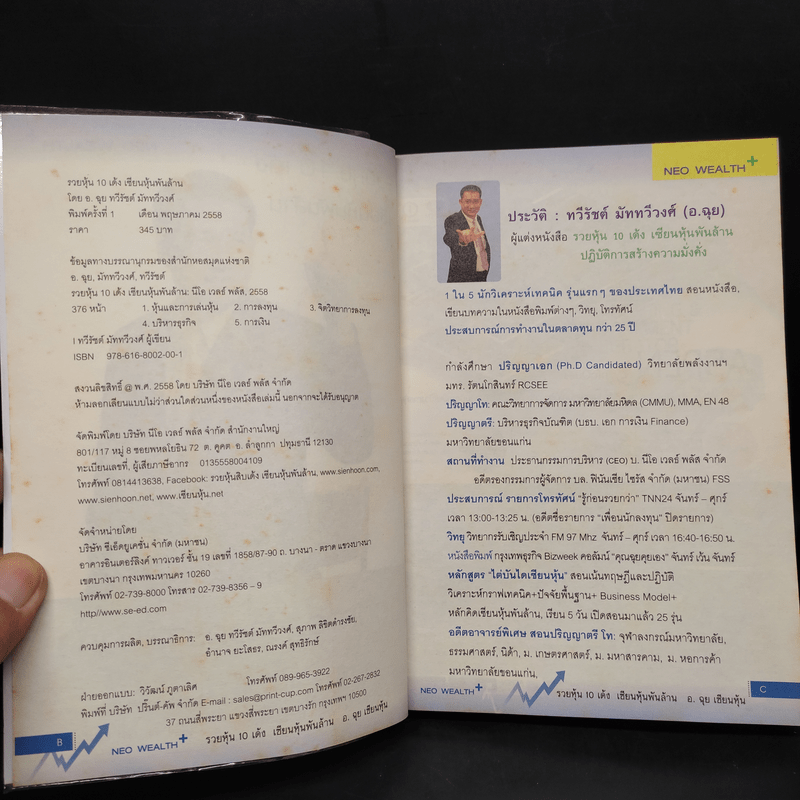 รวยหุ้น 10 เด้ง เซียนหุ้นพันล้าน
โดย อ. ฉุย ทวีรัชต์ มัททวีวงศ์
พิมพ์ครั้งที่ 1 เดือน พฤษภาคม 2558
ราคา 345 บาท
ข้อมูลทางบรรณานุกรมของสำนักหอสมุดแห่งชาติ
อ. ฉุย, มัททวีวงศ์, ทวีรัชต์
รวยหุ้น 10 เด้ง เซียนหุ้นพันล้าน: นีโอ เวลธ์ พลัส, 2558
376 หน้า 1. หุ้นและการเล่นหุ้น 2. การลงทุน 3. จิตวิทยาการลงทุน
4. บริหารธุรกิจ 5. การเงิน
I ทวีรัชต์ มัททวีวงศ์ ผู้เขียน
ISBN 978-616-8002-00-1
สงวนลิขสิทธิ์ @ พ.ศ. 2558 โดย บริษัท นีโอ เวลธ์ พลัส จำกัด
ห้ามลอกเลียนแบบไม่ว่าส่วนใดส่วนหนึ่งของหนังสือเล่มนี้ นอกจากจะได้รับอนุญาต
จัดพิมพ์โดย บริษัท นีโอ เวลธ์ พลัส จำกัด สำนักงานใหญ่
801/117 หมู่ 8 ซอยพหลโยธิน 72 ต. คูคต อ. ลำลูกกา ปทุมธานี 12130
ทะเบียนเลขที่, ผู้เสียภาษีอากร 0135558004109
โทรศัพท์ 0814413638, Facebook: รวยหุ้นสิบเด้ง เซียนหุ้นพันล้าน, www.sienhoon.com,
www.sienhoon.net, www.เซียนหุ้น.net
จัดจำหน่ายโดย
บริษัท ซีเอ็ดยูเคชั่น จำกัด (มหาชน)
อาคารอินเตอร์ลิงค์ ทาวเวอร์ ชั้น 19 เลขที่ 1858/87-90 ถ. บางนา - ตราด แขวงบางนา
เขตบางนา กรุงเทพมหานคร 10260
โทรศัพท์ 02-739-8000 โทรสาร 02-739-8356 – 9
http//www.se-ed.com
ควบคุมการผลิต, บรรณาธิการ: อ. ฉุย ทวีรัชต์ มัททวีวงศ์, สุภาพ ลิขิตดำรงชัย,
อำนาจ ยะโสธร, ณรงค์ สุทธิรักษ์
ฝ่ายออกแบบ: วิวัฒน์ ภูตาเลิศ โทรศัพท์ 089-965-3922
พิมพ์ที่ บริษัท ปริ้นต์-คัพ จำกัด E-mail : sales@print-cup.com โทรศัพท์ 02-267-2832
37 ถนนสี่พระยา แขวงสี่พระยา เขตบางรัก กรุงเทพฯ 10500
B NEO WEALTH+ รวยหุ้น 10 เด้ง เซียนหุ้นพันล้าน อ. ฉุย เซียนหุ้น
NEO WEALTH+
ประวัติ : ทวีรัชต์ มัททวีวงศ์ (อ.ฉุย)
ผู้แต่งหนังสือ รวยหุ้น 10 เด้ง เซียนหุ้นพันล้าน
ปฏิบัติการสร้างความมั่งคั่ง
1 ใน 5 นักวิเคราะห์เทคนิค รุ่นแรกๆ ของประเทศไทย สอนหนังสือ,
เขียนบทความในหนังสือพิมพ์ต่างๆ, วิทยุ, โทรทัศน์
ประสบการณ์การทำงานในตลาดทุน กว่า 25 ปี
กำลังศึกษา ปริญญาเอก (Ph.D Candidated) วิทยาลัยพลังงานฯ
มทร. รัตนโกสินทร์ RCSEE
ปริญญาโท: คณะวิทยาการจัดการ มหาวิทยาลัยมหิดล (CMMU), MMA, EN 48
ปริญญาตรี: บริหารธุรกิจบัณฑิต (บธบ. เอก การเงิน Finance)
มหาวิทยาลัยขอนแก่น
สถานที่ทำงาน ประธานกรรมการบริหาร (CEO) บ. นีโอ เวลธ์ พลัส จำกัด
อดีตรองกรรมการผู้จัดการ บล. ฟินันเซีย ไซรัส จำกัด (มหาชน) FSS
ประสบการณ์ รายการโทรทัศน์ "รู้ก่อนรวยกว่า" TNN24 จันทร์ – ศุกร์
เวลา 13:00-13:25 น. (อดีตชื่อรายการ "เพื่อนนักลงทุน" ปิดรายการ)
วิทยุ วิทยากรรับเชิญประจำ FM 97 Mhz จันทร์ – ศุกร์ เวลา 16:40-16:50 น.
หนังสือพิมพ์ กรุงเทพธุรกิจ Bizweek คอลัมน์ "คุณฉุยคุยเอง" จันทร์ เว้น จันทร์
หลักสูตร "ไต่บันไดเซียนหุ้น" สอนเน้นทฤษฎีและปฏิบัติ
วิเคราะห์กราฟเทคนิค+ปัจจัยพื้นฐาน+ Business Model+
หลักคิดเซียนหุ้นพันล้าน, เรียน 5 วัน เปิดสอนมาแล้ว 25 รุ่น
อดีตอาจารย์พิเศษ สอนปริญญาตรี โท: จุฬาลงกรณ์มหาวิทยาลัย,
ธรรมศาสตร์, นิด้า, ม. เกษตรศาสตร์, ม. มหาสารคาม, ม. หอการค้า
มหาวิทยาลัยขอนแก่น,
NEO WEALTH+ รวยหุ้น 10 เด้ง เซียนหุ้นพันล้าน อ. ฉุย เซียนหุ้น C